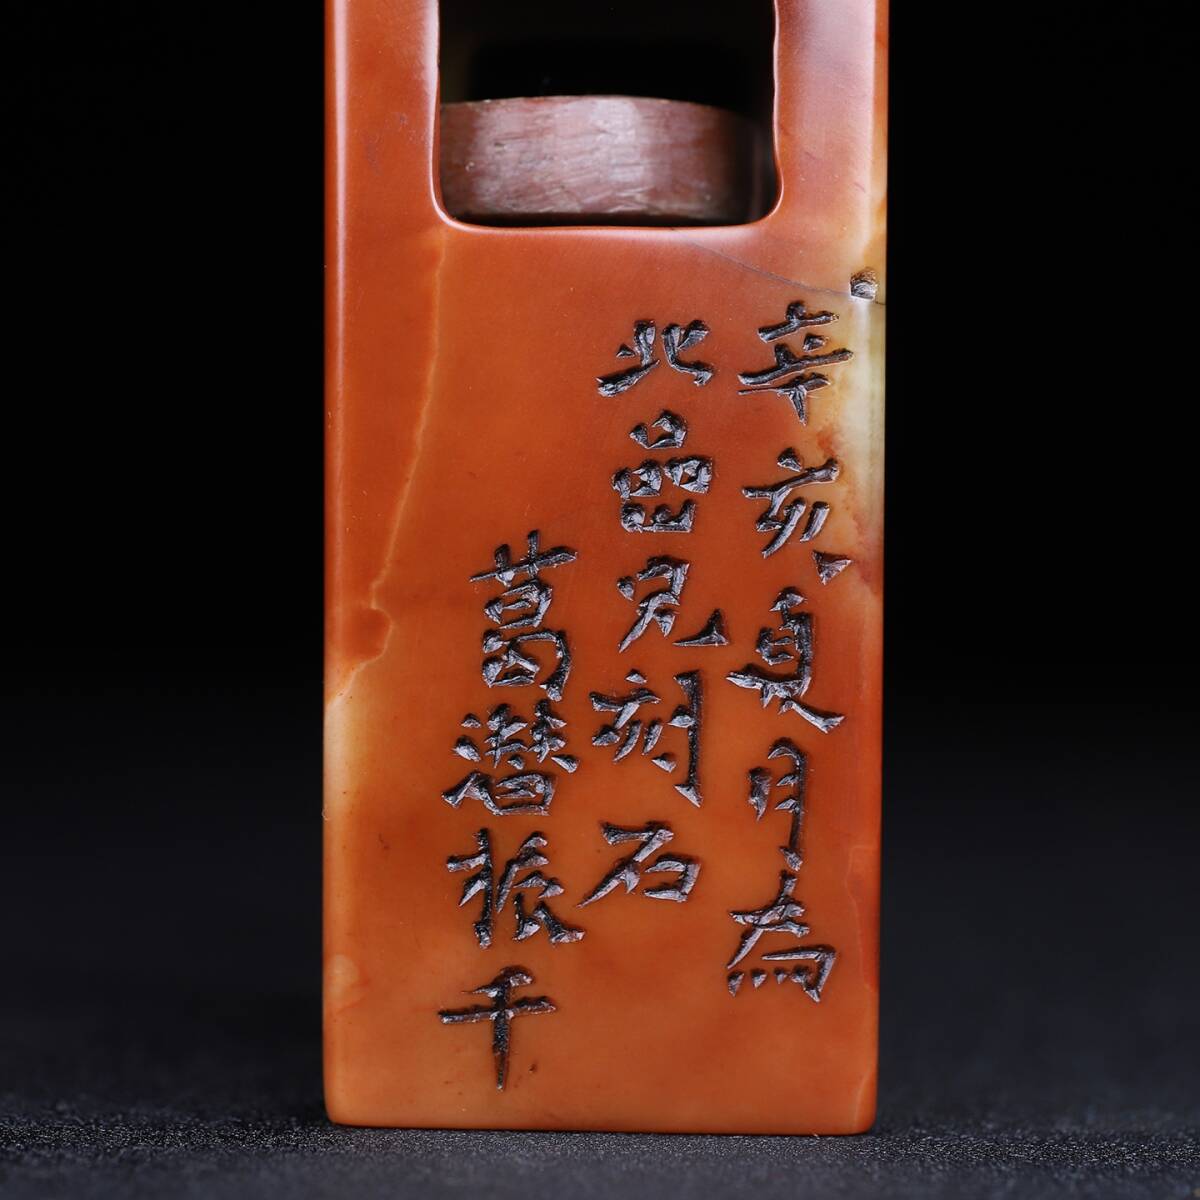 辛亥夏月為
北嵒兄刻石
葛潛振千